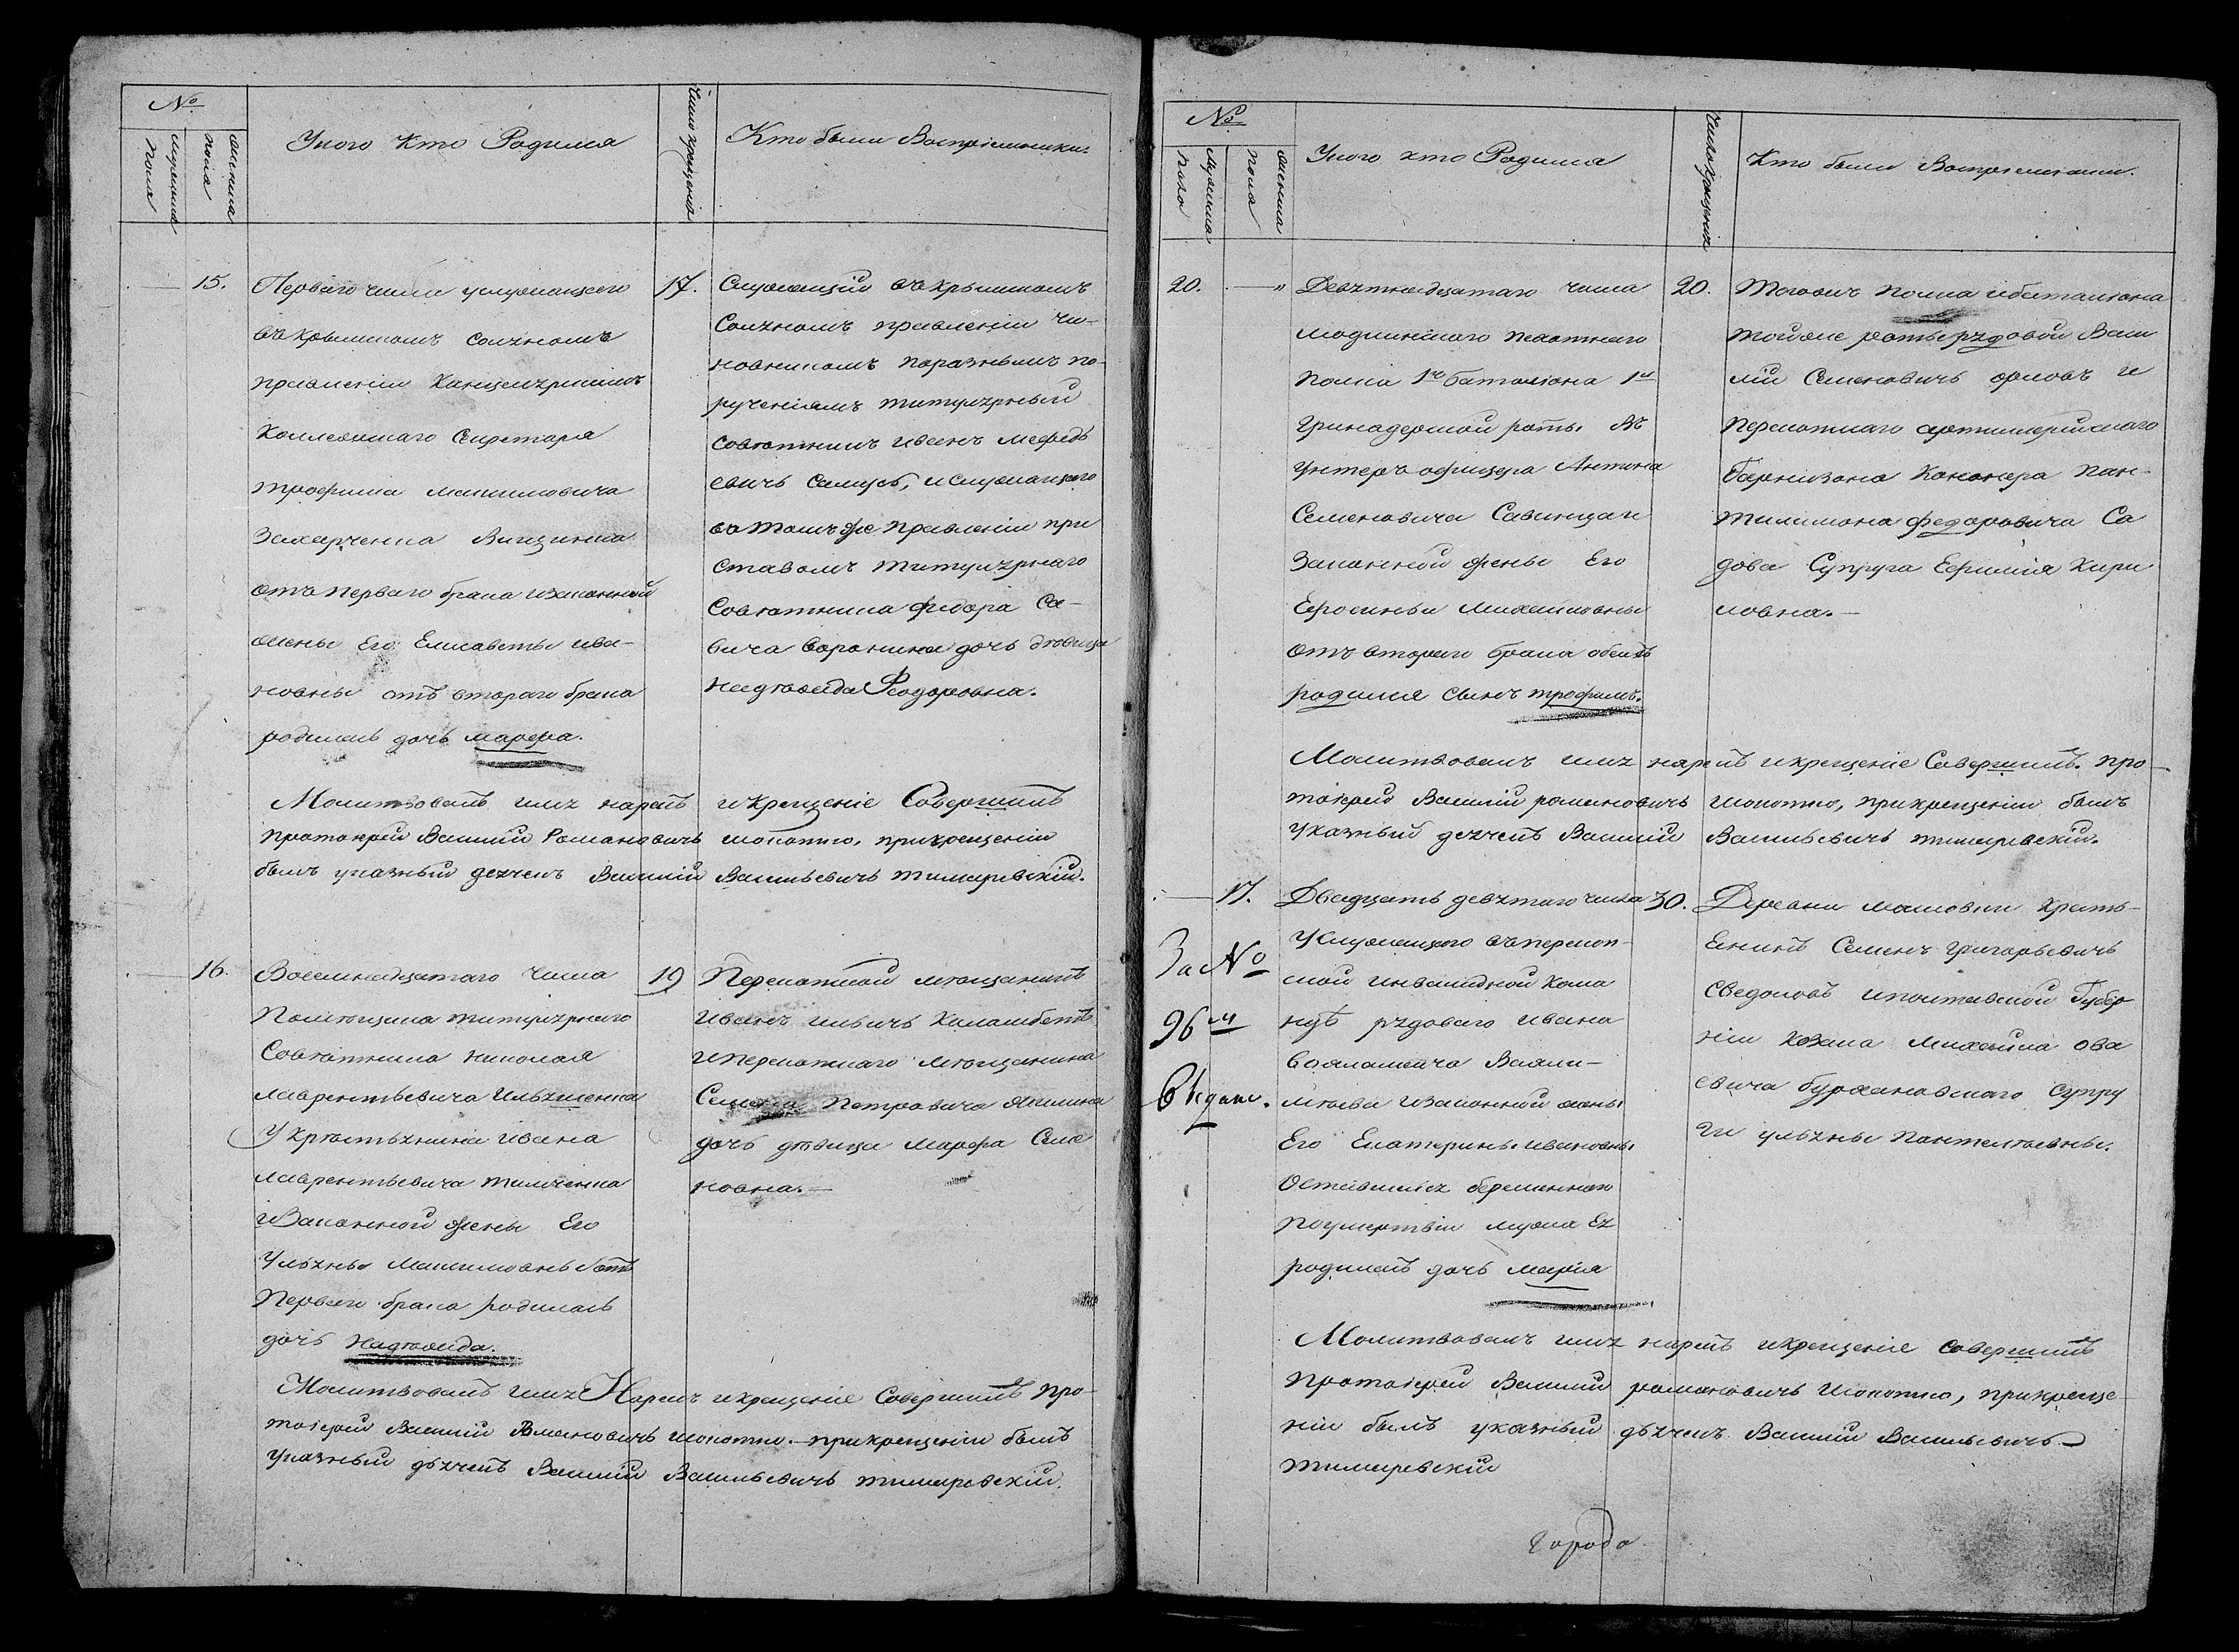 №
Мужеска Пола
Женска пола
Укого Кто Родился
Число крещенія
Кто были Воспріемники.
15.
Перваго числа услужащего
въ крымскомъ соляномъ
правленіи канцеляристъ
Коллежскаго Секретаря
трофима максимовича
Захарченка
отъ перваго брака изаконной
жены Его Елисаветы ива-
новны отъ втораго брака
родилась дочь марфа.
17.
Служащій въ крымскомъ
Соляномъ правленіи чи-
новникомъ поразнымъ по-
рученіямъ титулярный
совѣтникъ иванъ мефедь
евичъ Самусь, и служащаго
въ томъ же правленіи при
ставомъ титулярнаго
Совѣтника федора Са-
вича воронина дочь дѣвица
надѣжда Феодоровна.
Молитвовалъ имя нарекъ икрещеніе Совершилъ
протоіерей Василій Романовичъ шопотко, прикрещеніи
былъ указный дячекъ Василій Васильевичъ тимаревскій.
16.
Восемнадцатаго числа
Помѣщика титулярнаго
Совѣтника николая
лаврентьевича Ильяшенка
У крѣстьянина ивана
лаврентьевича тимченка
изаконной жены Его
ульяны Максимовны отъ
Перваго брака родилась
дочь надѣжда.
19
Перекопской мѣщанинъ
иванъ ильичъ
иперекопскаго мѣщанина
Семена Петровича
дочь дѣвица Марфа Семе
новна.—
Молитвовалъ имя Нарекъ икрещеніе Совершилъ про-
тоіерей Василій Романовичъ шопотко. прикрещеніи былъ
Указный дьячекъ Василій Васильевичъ тимаревскій.
№
Мужеска пола
Женска Пола
Укого кто Родился
Число Крещенія
Кто были Воспріемники.
20.
Девятнадцатаго числа
модлинскаго пехотнаго
полка 1го баталіона 1й
гринадерской роты въ
Унтеръ офицера Антона
Семеновича Савицкаго
Законной жены Его
Ефросиньи Михайловны
отъ втораго брака обеихъ
родился сынъ трофимъ.
20.
Тоговжъ полка ибаталіона
тойже роты рядовой Васи
лій Семеновичъ орловъ и
Перекопскаго артилерійскаго
Гарнизона Канонера пан-
тилимона федоровича Са
дова Супруга Ефимія Кири
ловна.—
Молитвовалъ имя нарекъ икрещеніе Совершилъ. про-
тоіерей Василій романовичъ шопотко, прикрещеніи былъ
указный дячекъ Василій Васильевичъ тимаревскій.
17.
За №
96м
выдано.
Двадцать девятаго числа
Услужащего въперекоп-
ской инвалидной Кома
ндѣ рядоваго ивана
изаконной жены
Его Екатерины ивановны
Оставшаяся беременною
поумертвіи мужа Ея
родилась дочь марія
30.
Деревни Кресть-
янинъ Семенъ григорьевичъ
иполтавской Губер
ніи Козака Михаила
евича бурхановскаго супру
ги ульяны пантелѣевны.
Молитвовалъ имя нарекъ икрещеніе совершилъ
протоіерей Василій романовичъ шопотко, прикреще
ніи былъ указный дьячекъ Василій Васильевичъ
тимаревскій
города